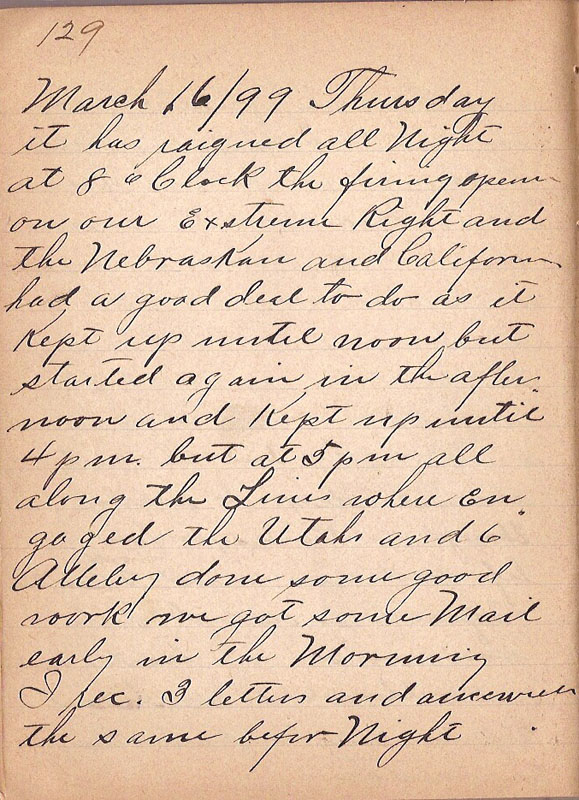 129
March 16/99 Thursday
it has raigned all Night
at 8 o Clock the firing open
on our Extreme Right and
the Nebraskan and Californ
had a good deal to do as it
Kept up until noon but
started again in the after
noon and Kept up until
4 pm. but at 5 pm all
along the Lines where En
gaged the Utahs and 6"
Atteley done some good
work we got some Mail
early in the Morning
I rec. 3 letters and
the same befor Night